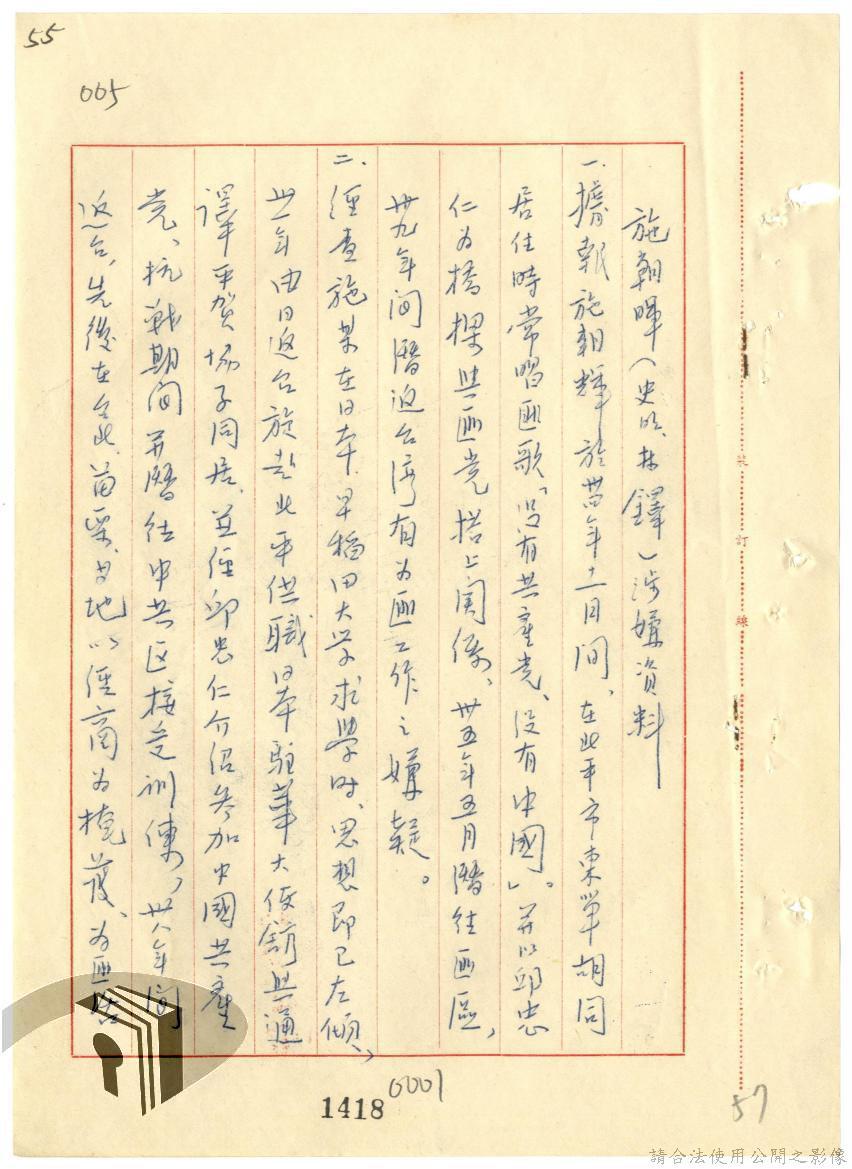 55
005
施朝暉(史明、林鐸)涉嫌資料
一、據報施朝輝於卅四年十一月間、在北平市東單胡同
居住時常唱匪歌「沒有共產党、沒有中國」。并以邱忠
仁为橋樑與匪党搭上関係、卅五年五月潛往匪區,
卅九年间潛返台湾有为匪工作之嫌疑。
二、經查施某在日本早稲田大学求學时、思想即已左傾、
卅一年由日返台旋赴北平供職日本駐華大使館與通
譯平賀協子同居、並經邱忠仁介紹参加中國共產
党、抗戰期间并潛往中共区接受训練,卅八年间
返台,先後在台北、苗栗、各地以經商为掩護、为匪活
裝
訂
線
1418
0001
57
請合法使用公開之影像